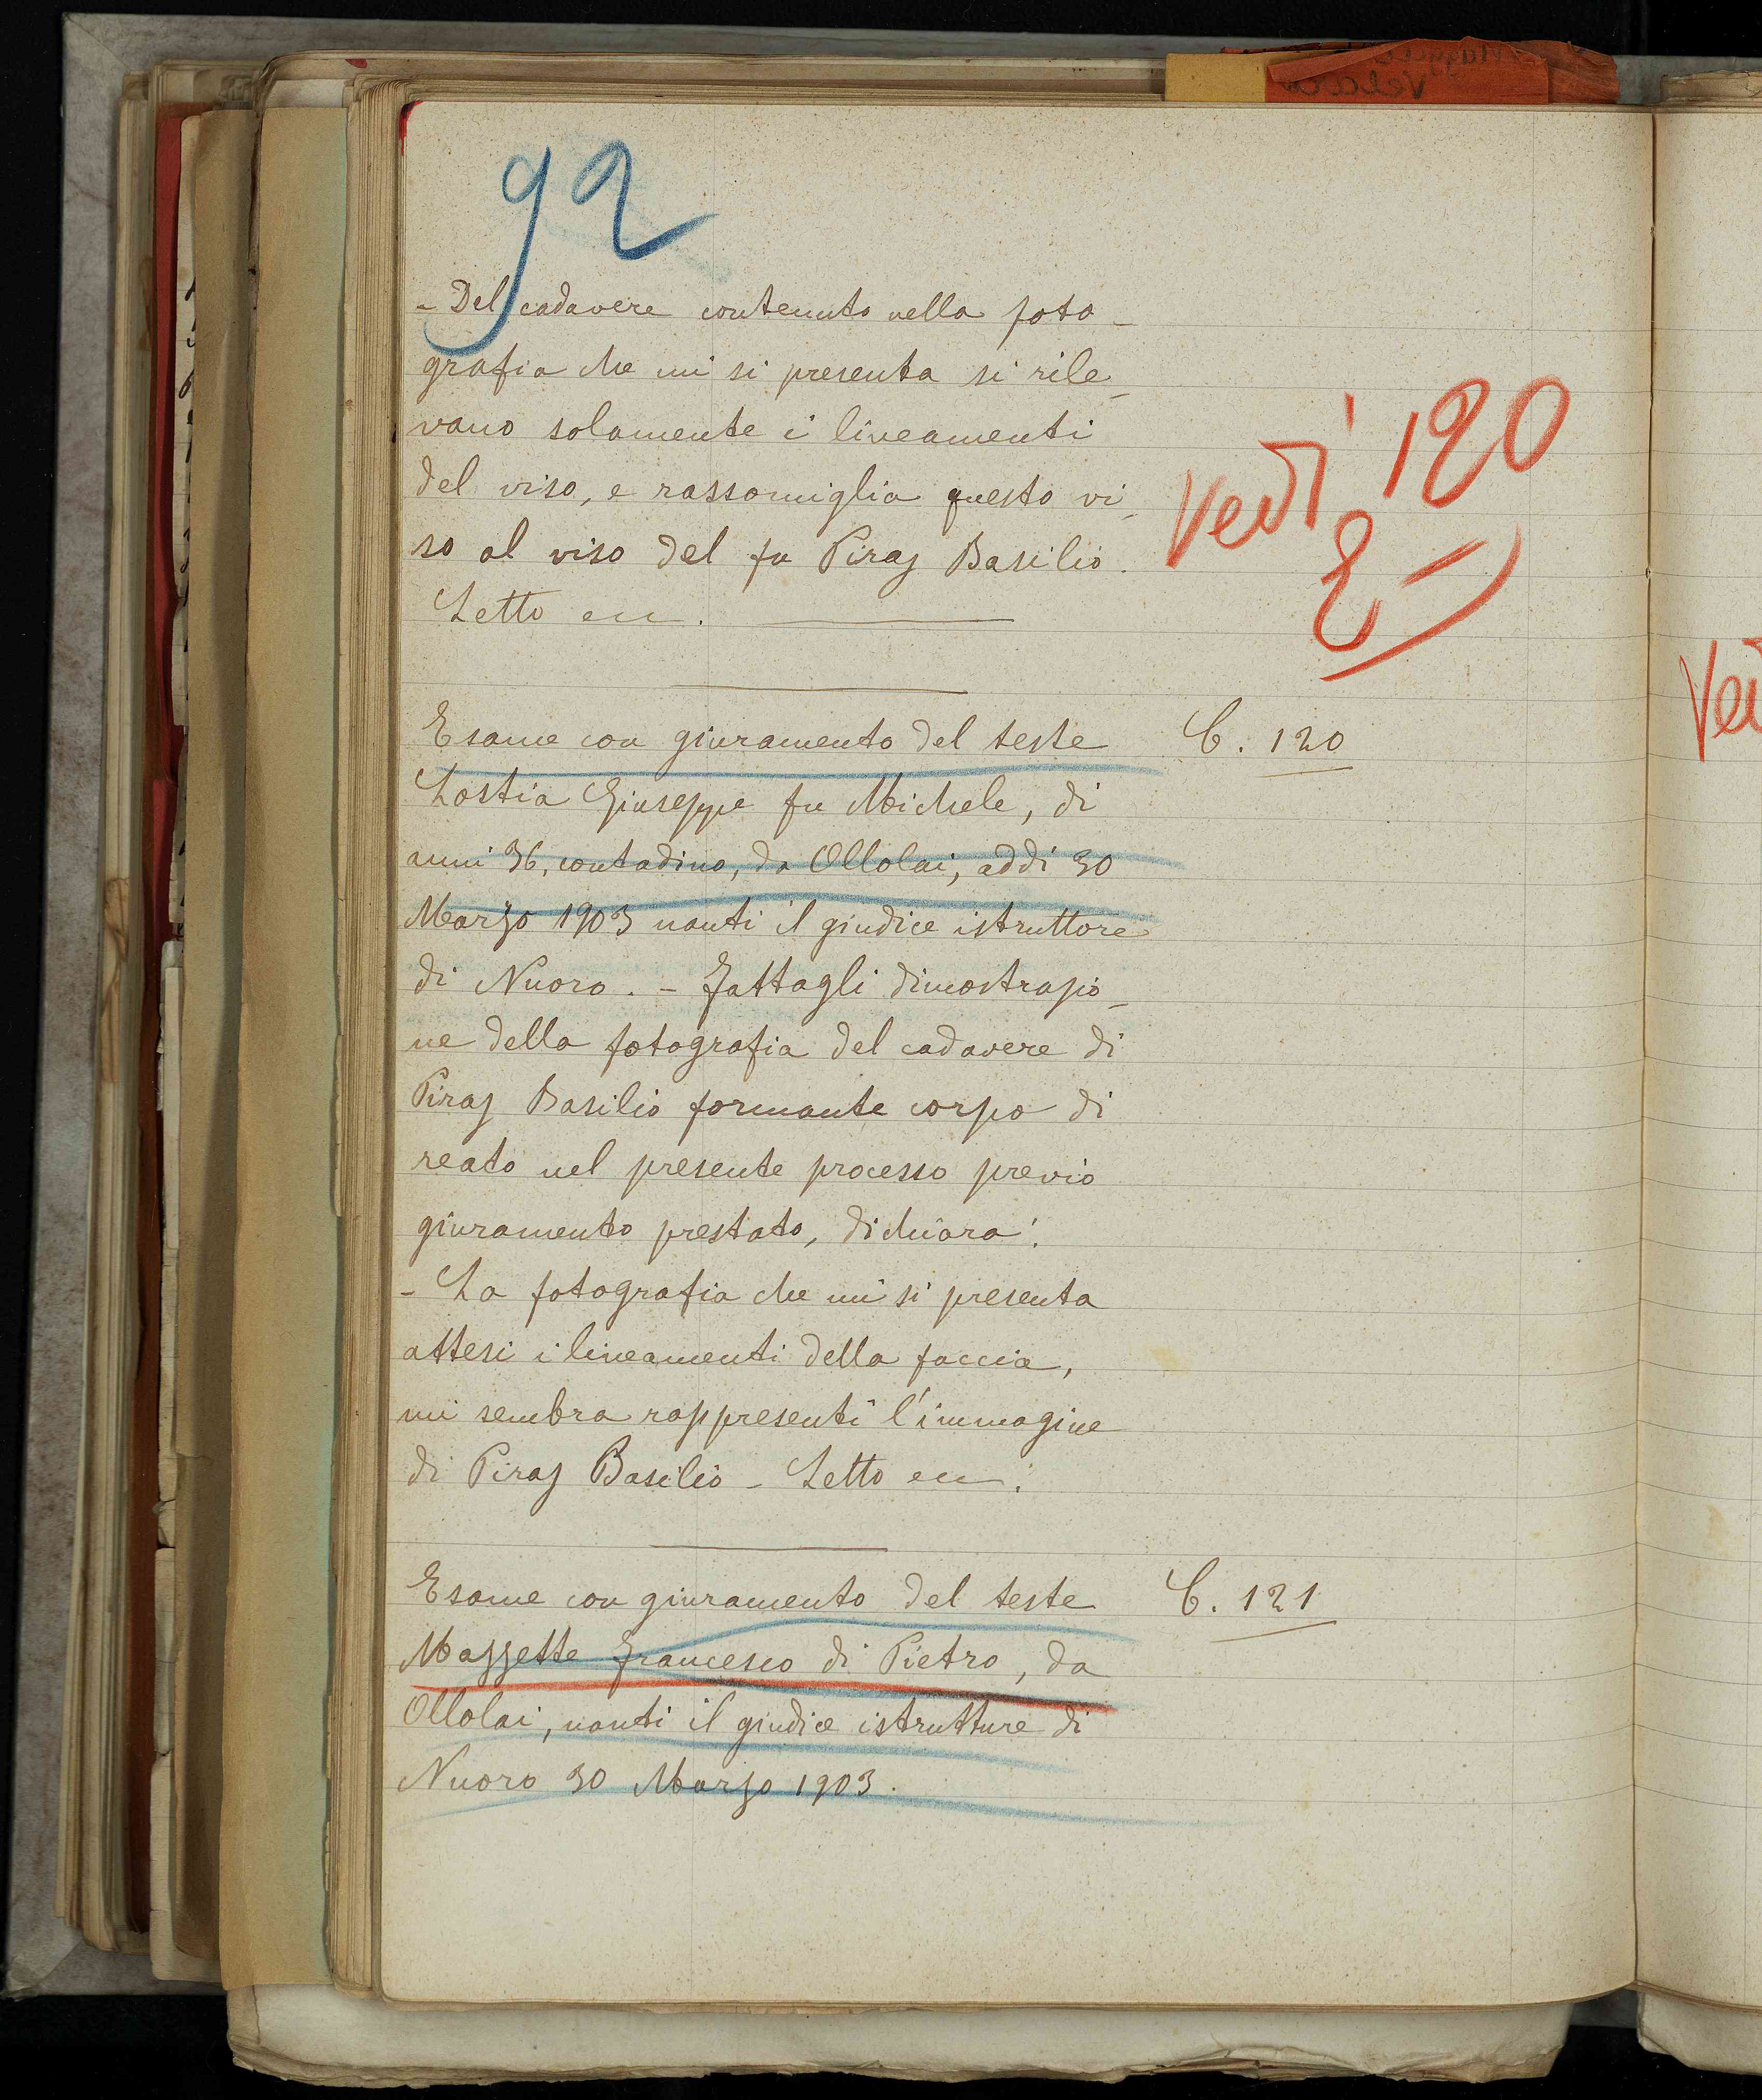 92
- Del cadavere contenuto nella foto_
grafia che mi si presenta si rile_
vano solamente i lineamenti
del viso, e rassomiglia questo vi_
so al viso del fu Piras Basilio.
Letto ecc.
Vedi 120
Esame con giuramento del teste
C. 120
Lostia Giuseppe fu Michele, di
anni 36, contadino, da Ollolai, addì 30
Marzo 1903 nanti il giudice istruttore
di Nuoro. - Fattagli dimostrazio_
ne della fotografia del cadavere di
Piras Basilio formante corpo di
reato nel presente processo previo
giuramento prestato, dichiara:
- La fotografia che mi si presenta
attesi i lineamenti della faccia,
mi sembra rappresenti l'immagine
di Piras Basilio - Letto ecc.
Esame con giuramento del teste
C. 121
Mazzette Francesco di Pietro, da
Ollolai, nanti il giudice istrutture di
Nuoro 30 Marzo 1903.